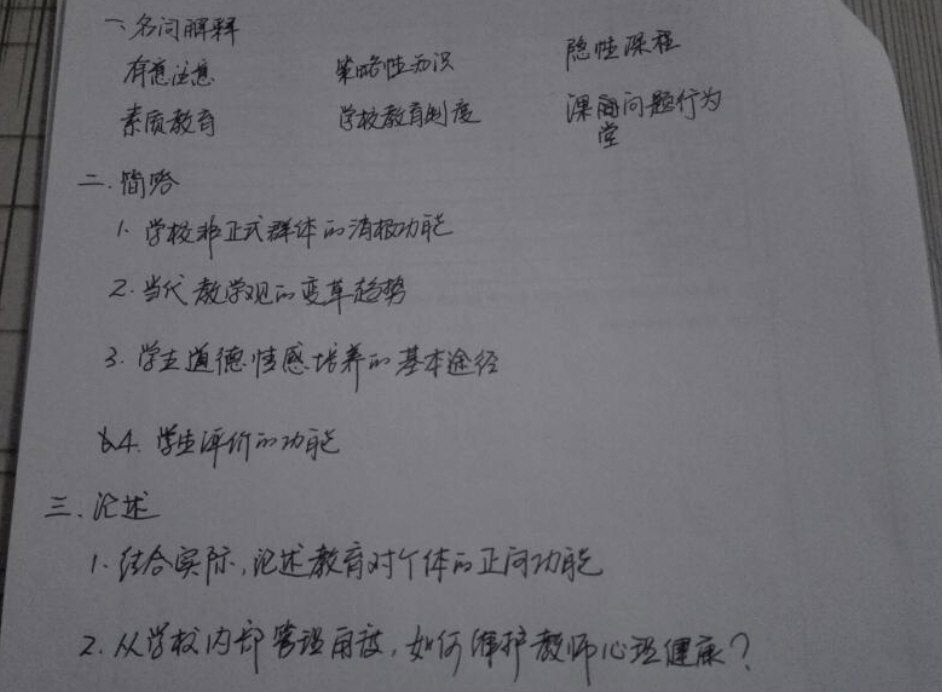 一、名词解释
有意注意 策略性知识 隐性课程
素质教育 学校教育制度 课堂问题行为
二.简略
1. 学校非正式群体的消极功能
2. 当代教学观的变革趋势
3. 学生道德情感培养的基本途径
4. 学生评价的功能
三.论述
1. 结合实际,论述教育对个体的正向功能
2. 从学校内部管理角度,如何维护教师心理健康?